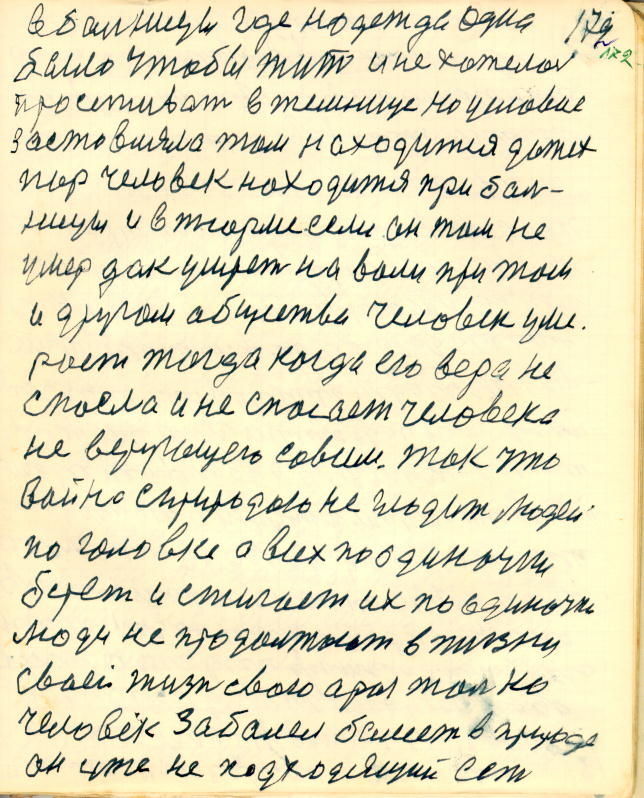 в балницы где надежда одна 172
172
было чтобы жит и не хателос
просеживат в темнице но условие
заставляла там находится даже
пар человек находится при бал-
ницы и в тюрме если он там не
умер дак умрет на воли при том
и другом абщества человек уме.
рает тогда когда его вера не
спасла и не спасает человека
не верующего совсим. так что
война с природаю не гладит людей
по головке а всех поодиночки
берет и стигает их поодиночки
люди не продолжают в жизни
своей жизн свою толко
человек забалел балеет в природе
он уже не подходящий сет